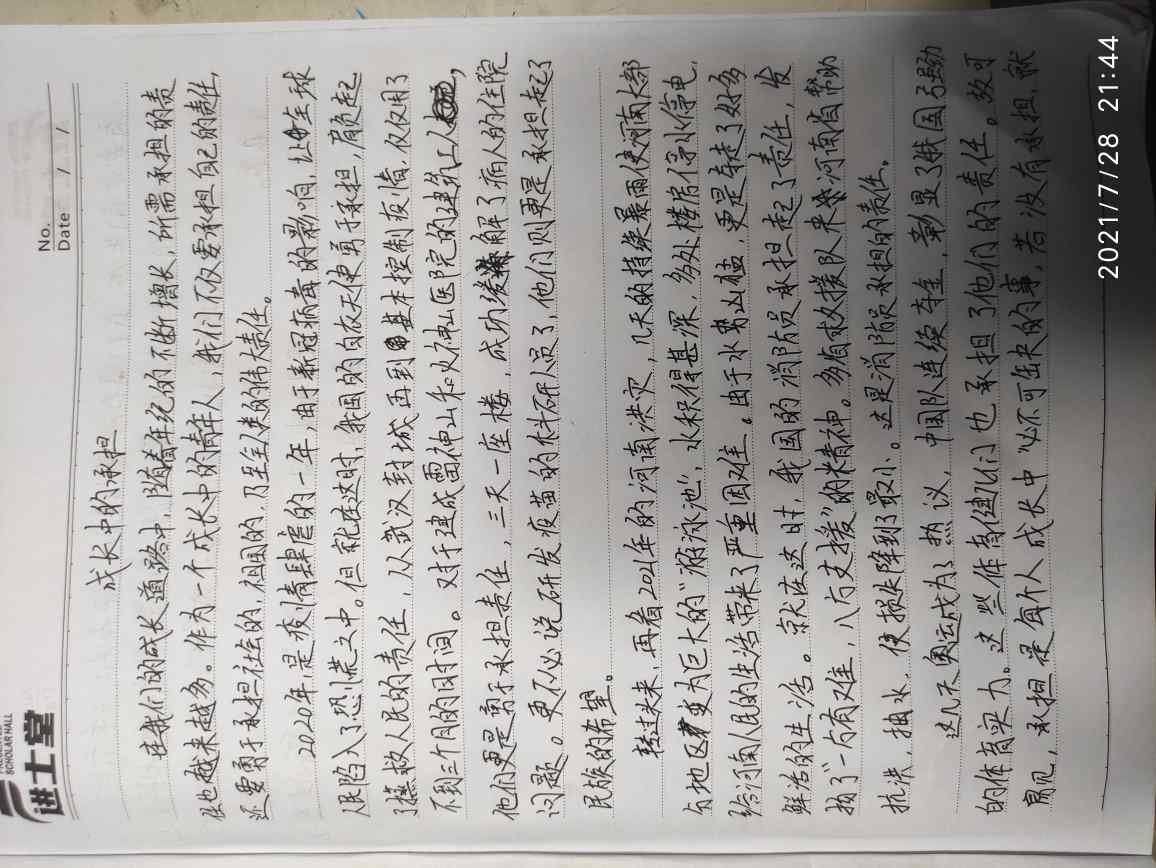 进士堂
SCHOLAR HALL
No.
Date / /
成长中的承担
在我们的成长道路中，随着年纪的不断增长，所需承担的责
任也越来越多。作为一个成长中的青年人，我们不仅要承担自己的责任，
还要勇于承担社会的，祖国的，乃至全人类的伟大责任。
2020年，是疫情肆虐的一年，由于新冠病毒的影响，让全球
人民陷入了恐慌之中。但就在这时，我国的白衣天使勇于承担，肩起
了拯救人民的责任，从武汉封城再到基本控制疫情，仅仅用了
不到三个月的时间。对于建成雷神山和火神山医院的建筑工人，
他们更是勇于承担责任，三天一座楼，成功缓解了病人的住院
问题。更不必说研发疫苗的科研人员了，他们则更是承担起了
民族的希望。
转过头来，再看2021年的河南洪灾，几天的持续暴雨使河南大部
分地区变为巨大的“游泳池”，水积得甚深，多处楼房停水停电，
给河南人民的生活带来了严重困难。由于水势凶猛，更是夺走了好多
鲜活的生活。就在这时，我国的消防员承担起了责任，发
扬了“一方有难，八方支援”的精神。多省救援队来河南省帮助
抗洪，抽水，使损失降到了最小。这是消防员承担的责任。
这几天奥运成为了热议，中国队连续夺金，彰显了我国强劲
的体育实力。这些体育健儿们也承担了他们的责任。故可
见，承担是每个人成长中“必不可缺的事，若没有承担，就
2021/7/28 21:44